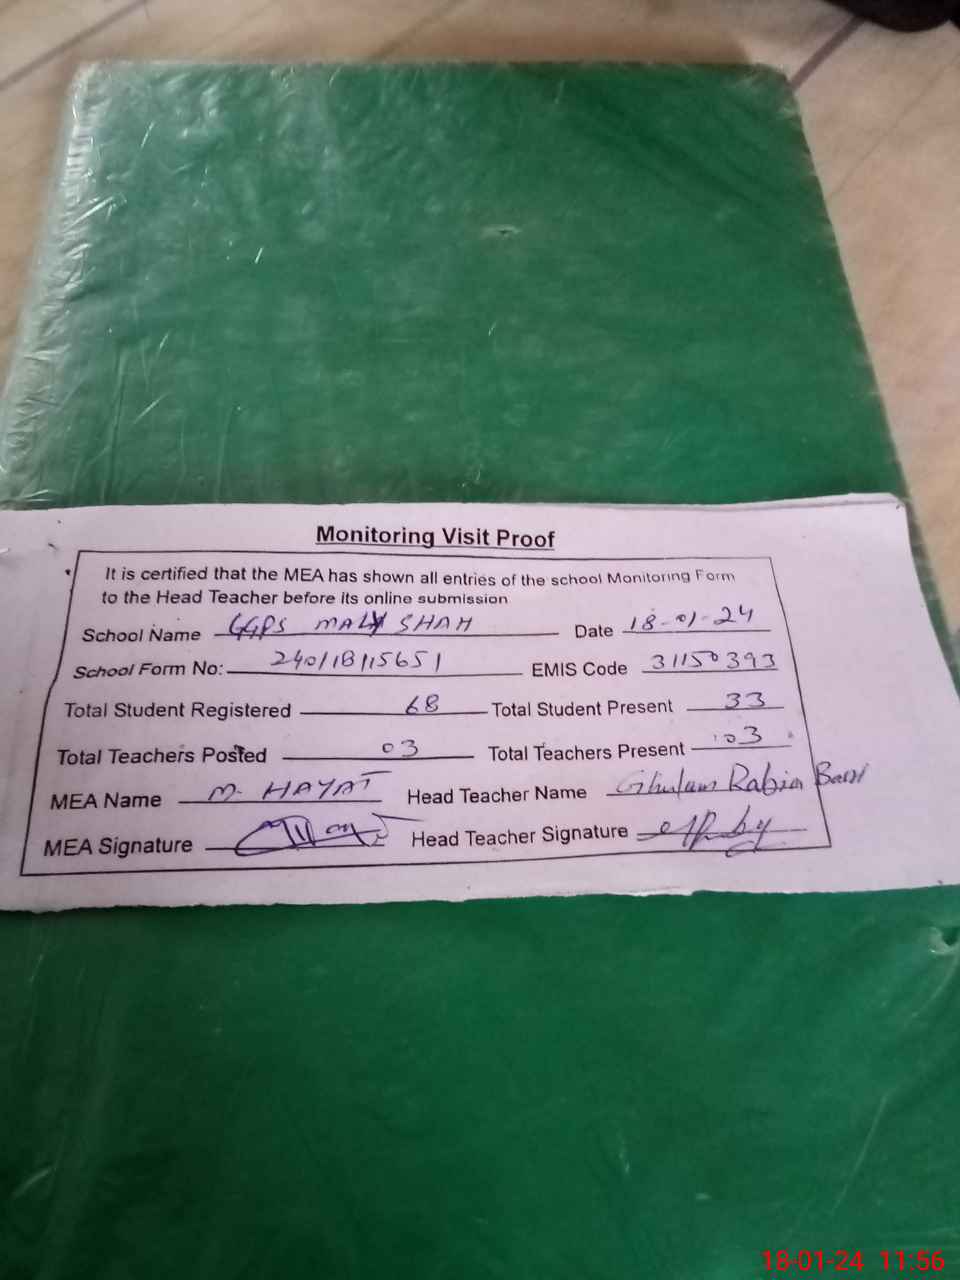 Monitoring Visit Proof
It is certified that the MEA has shown all entries of the school Monitoring Form
to the Head Teacher before its online submission
School Name GGPS MALY SHAH Date 18-01-24
School Form No: 240118115651 EMIS Code 31150393
Total Student Registered 68 Total Student Present 33
Total Teachers Posted 03 Total Teachers Present 03
MEA Name M. HAYAT Head Teacher Name Ghulam Rabia
MEA Signature Head Teacher Signature
18-01-24 11:56